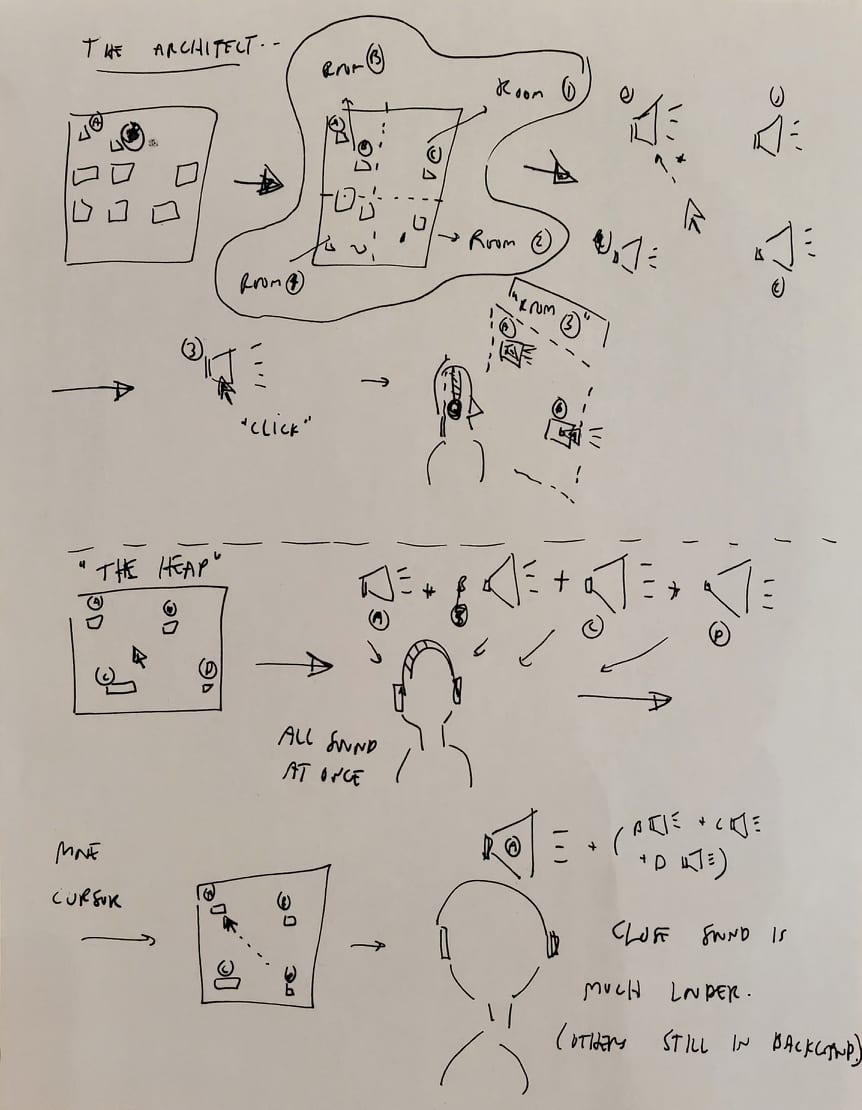 THE ARCHITECT..
ROOM 3
ROOM 1
A
A
B
C
ROOM 2
ROOM 4
1
2
3
"CLICK"
"ROOM 3"
A
B
"THE HEAP"
A
B
C
D
A + B + C + D
ALL SOUND
AT ONCE
MOVE
CURSOR
A
B
C
D
A + ( B + C
+ D )
CLOSE SOUND IS
MUCH LOUDER.
(OTHERS STILL IN BACKGROUND)